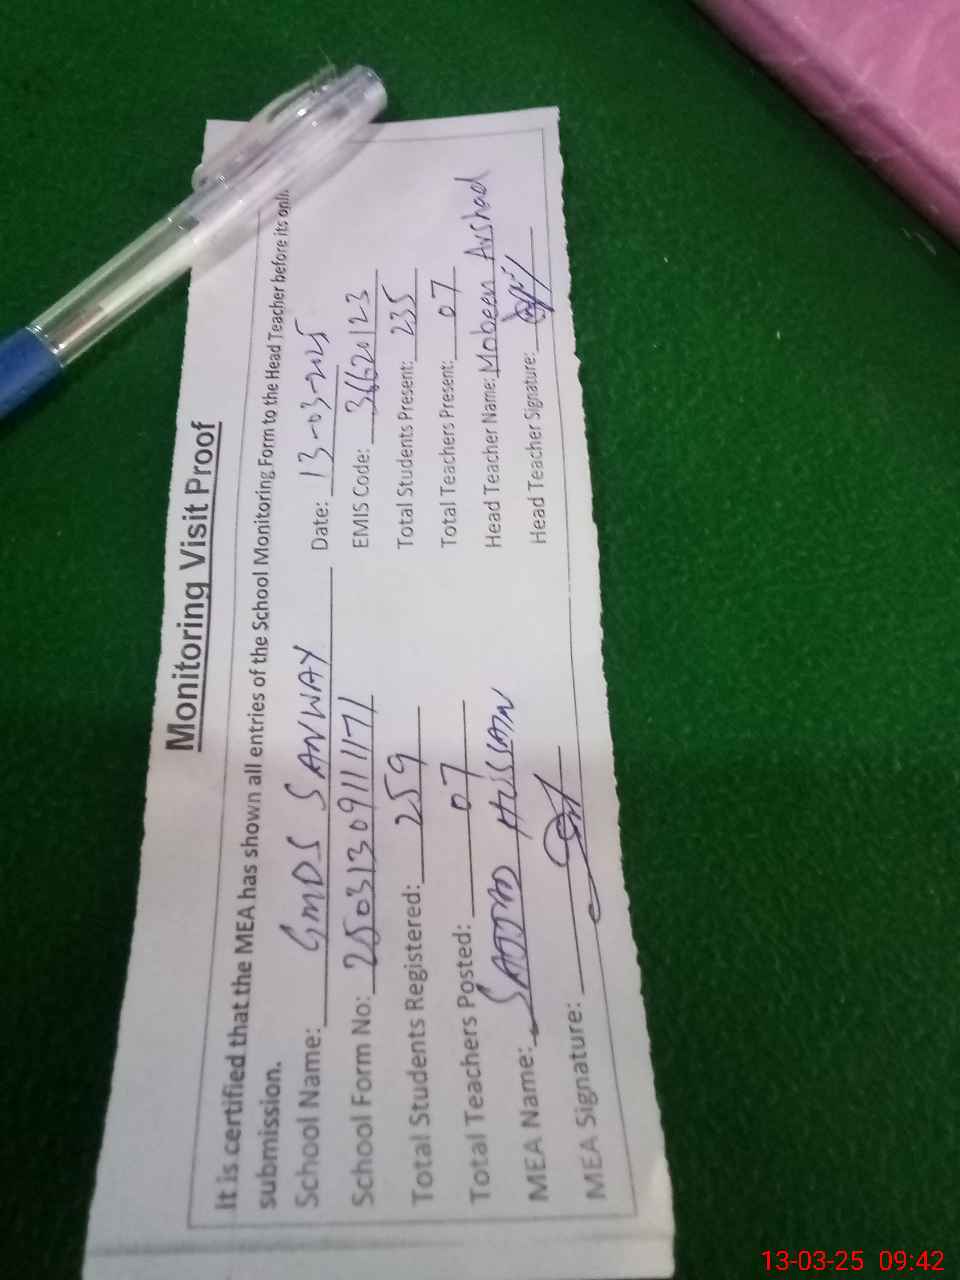 Monitoring Visit Proof
It is certified that the MEA has shown all entries of the School Monitoring Form to the Head Teacher before its onli
submission.
School Name: GMDS SANWAY Date: 13-03-2025
School Form No: 25031309111171 EMIS Code: 36620123
Total Students Registered: 259 Total Students Present: 235
Total Teachers Posted: 07 Total Teachers Present: 07
MEA Name: SAJJAD HUSSAIN Head Teacher Name: Mobeen Arshad
MEA Signature: Head Teacher Signature:
13-03-25 09:42